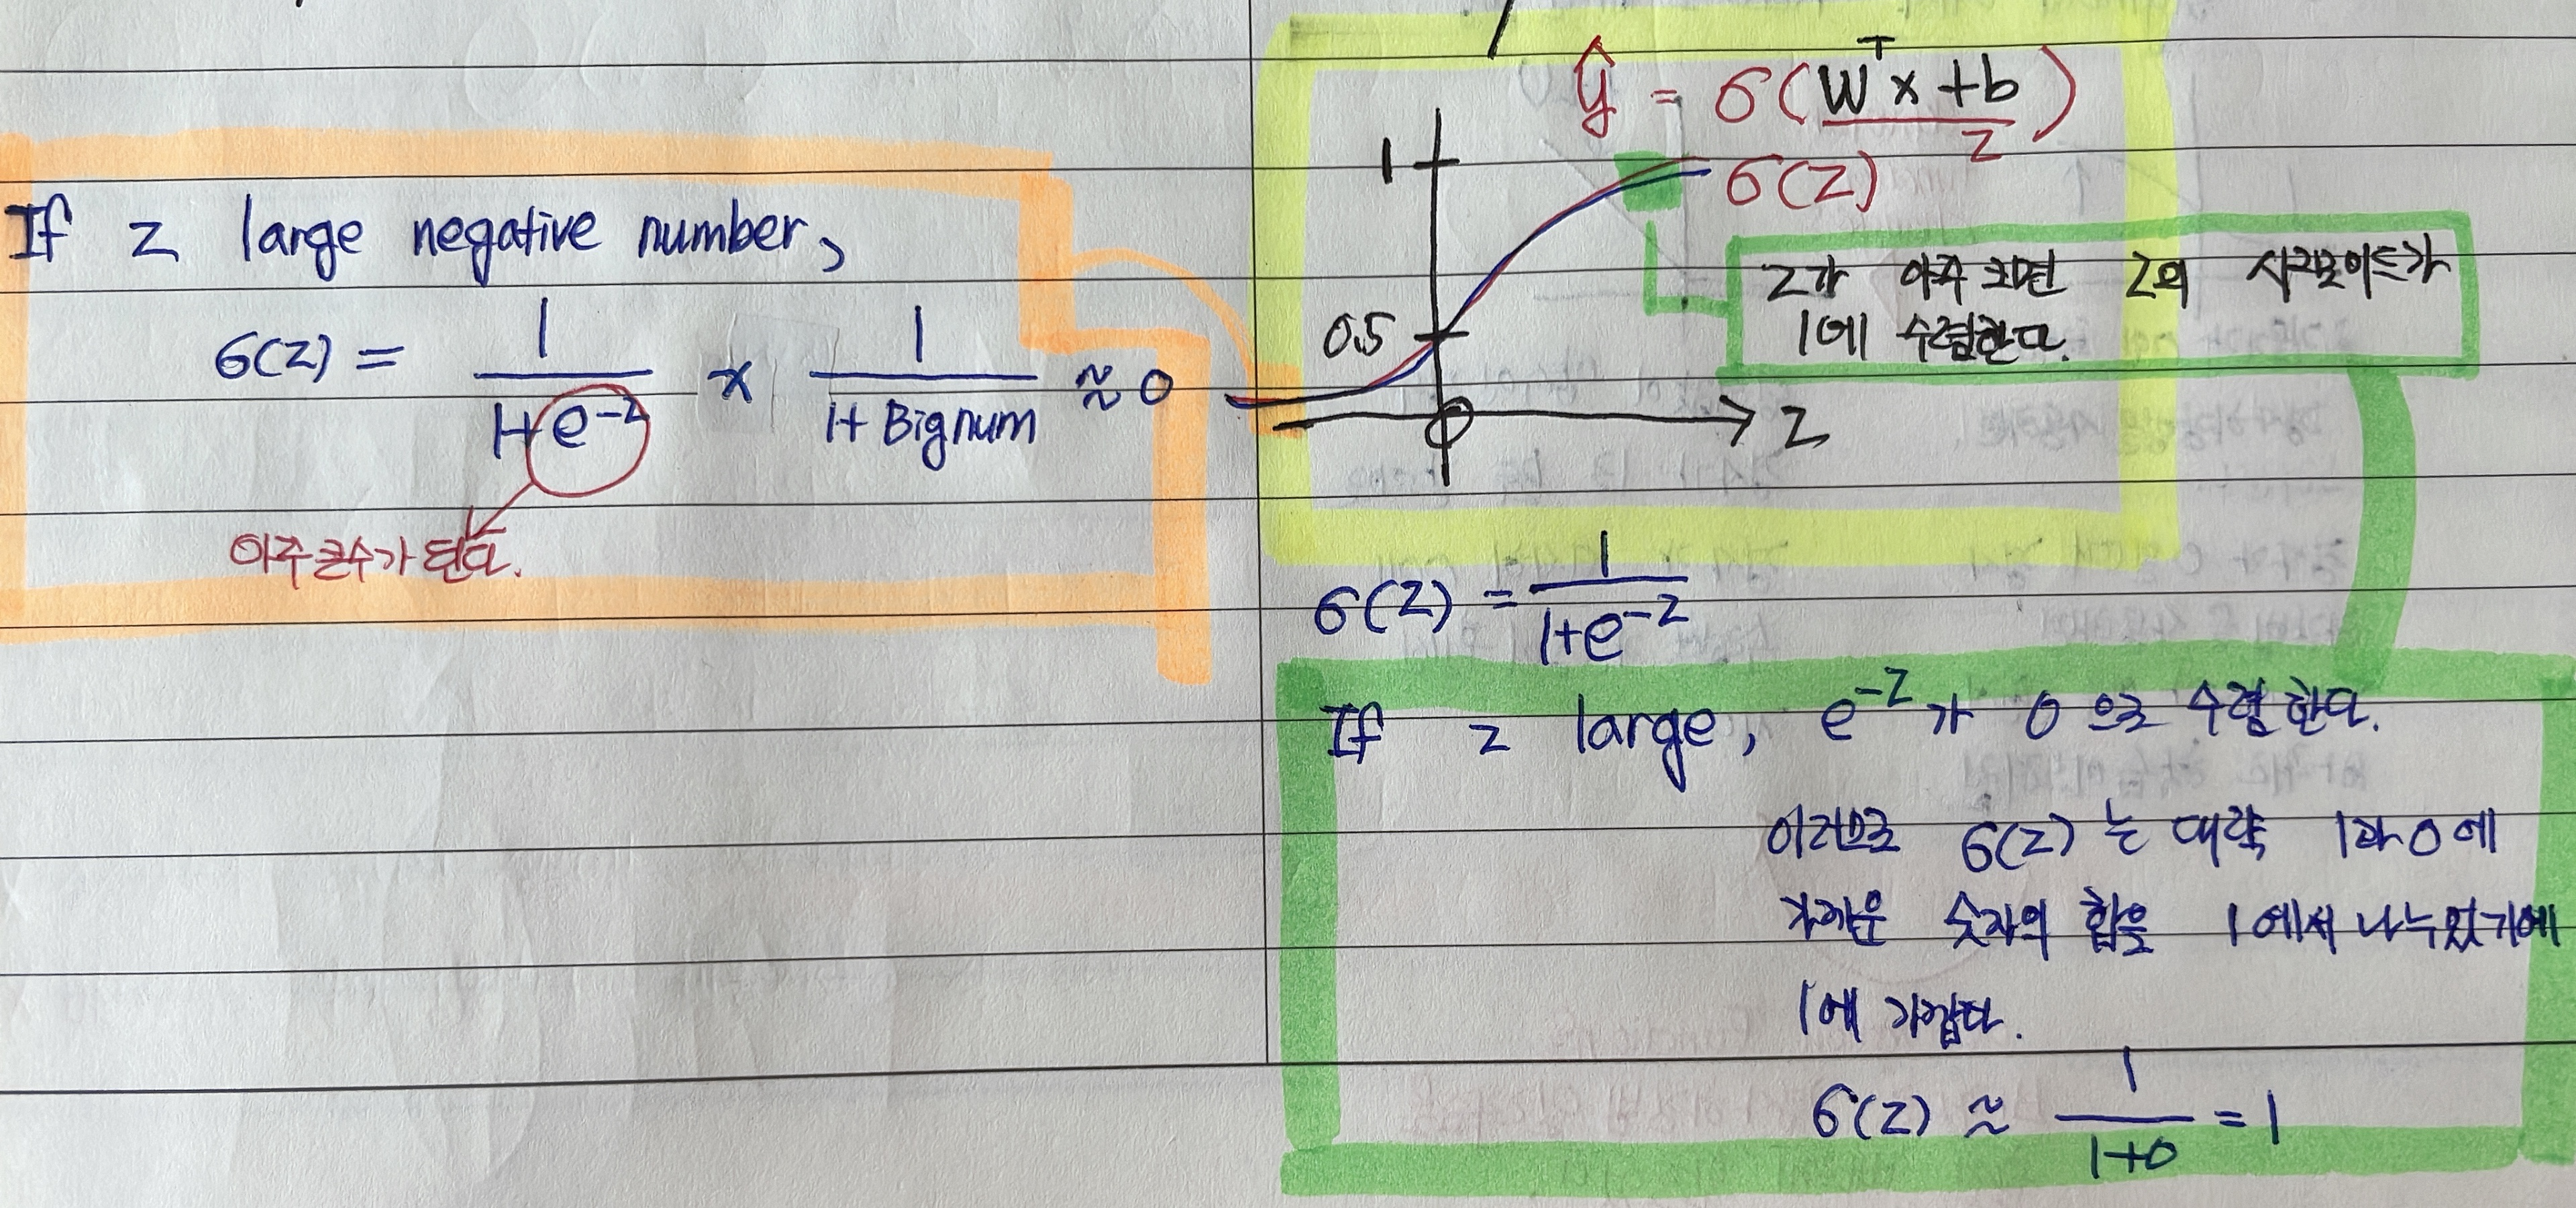 If z large negative number,
σ(z) = 1/(1+e^-z) x 1/(1+Bignum) ≈ 0
아주큰수가 된다.
ŷ = σ(W^T x + b)
z
1
σ(z)
z가 아주 크면 z의 시그모이드가
1에 수렴한다.
0.5
0
z
σ(z) = 1/(1+e^-z)
If z large, e^-z가 0 으로 수렴한다.
이러므로 σ(z) 는 대략 1과 0에
가까운 숫자의 합을 1에서 나누었기에
1에 가깝다.
σ(z) ≈ 1/(1+0) = 1